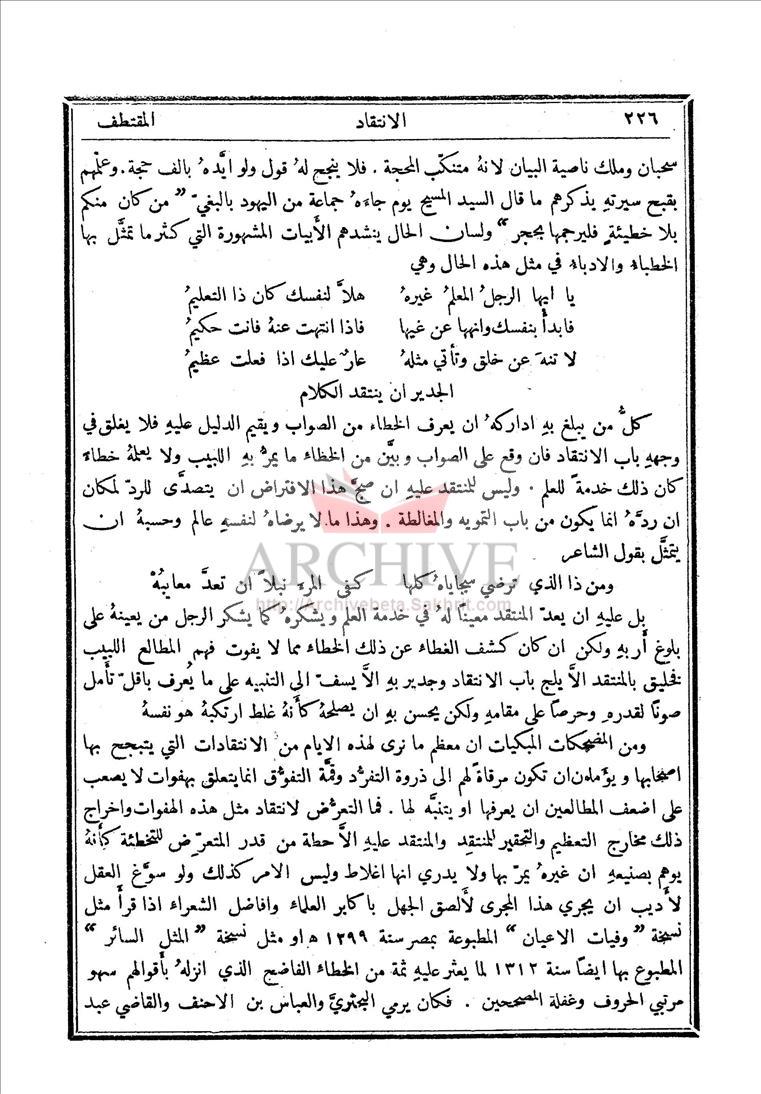 ٢٢٦ الانتقاد المقتطف
سحبان وملك ناصية البيان لانهُ متنكّب المحجة . فلا ينجح لهُ قول ولو ايّدهُ بالف حجة . وعلمهم
بقبح سيرتهِ يذكرهم ما قال السيد المسيح يوم جاءهُ جماعة من اليهود بالبغيّ " من كان منكم
بلا خطيئةٍ فليرجمها بحجر " ولسان الحال ينشدهم الأبيات المشهورة التي كثر ما تمثَّل بها
الخطباءُ والادباءُ في مثل هذه الحال وهي
يا ايها الرجلُ المعلمُ غيرهُ هلاَّ لنفسك كان ذا التعليمُ
فابدأ بنفسك وانهها عن غيها فاذا انتهت عنهُ فانت حكيمُ
لا تنهَ عن خلق وتأتي مثلهُ عارٌ عليك اذا فعلت عظيمُ
الجدير ان ينتقد الكلام
كلُّ من يبلغ بهِ ادراكهُ ان يعرف الخطاء من الصواب ويقيم الدليل عليهِ فلا يغلق في
وجههِ باب الانتقاد فان وقع على الصواب وبيَّن من الخطاء ما يمرُّ بهِ اللبيب ولا يعلمهُ خطاءً
كان ذلك خدمةً للعلم . وليس للمنتقد عليهِ ان صحَّ هذا الافتراض ان يتصدَّى للردّ لمكان
ان ردَّهُ انما يكون من باب التمويه والمغالطة . وهذا ما لا يرضاهُ لنفسهِ عالم وحسبهُ ان
يتمثَّل بقول الشاعر
ARCHIVE
ومن ذا الذي ترضي سجاياهُ كلها كفى المرءَ نبلاً ان تعدَّ معايبُهْ
http://Archivebeta.Sakhrit.com
بل عليهِ ان يعدّ المنتقد معيناً لهُ في خدمة العلم ويشكرهُ كما يشكر الرجل من يعينهُ على
بلوغ أربهِ ولكن ان كان كشف الغطاء عن ذلك الخطاء مما لا يفوت فهم المطالع اللبيب
فخليق بالمنتقد الاَّ يلج باب الانتقاد وجدير بهِ الاَّ يسفّ الى التنبيه على ما يُعرف باقلّ تأمل
صوناً لقدرهِ وحرصاً على مقامهِ ولكن يحسن بهِ ان يصلحهُ كأنهُ غلط ارتكبهُ هو نفسهُ
ومن المضحكات المبكيات ان معظم ما نرى لهذه الايام من الانتقادات التي يتبجح بها
اصحابها ويؤملون ان تكون مرقاةً لهم الى ذروة التفرُّد وقمَّة التفوُّق انما يتعلق بهفوات لا يصعب
على اضعف المطالعين ان يعرفها او يتنبَّه لها . فما التعرُّض لانتقاد مثل هذه الهفوات واخراج
ذلك مخارج التعظيم والتحقير للمنتقِد والمنتقد عليهِ الاَّ حطة من قدر المتعرّض للتخطئة كأنهُ
يوهم بصنيعهِ ان غيرهُ يمرّ بها ولا يدري انها اغلاط وليس الامر كذلك ولو سوَّغ العقل
لأديب ان يجري هذا المجرى لألصق الجهل باكابر العلماء وافاضل الشعراء اذا قرأ مثل
نسخة " وفيات الاعيان " المطبوعة بمصر سنة ١٢٩٩ ه او مثل نسخة " المثل السائر "
المطبوع بها ايضاً سنة ١٣١٢ لما يعثر عليهِ ثمة من الخطاء الفاضح الذي انزلهُ بأقوالهم سهو
مرتبي الحروف وغفلة المصححين . فكان يرمي البحتريَّ والعباس بن الاحنف والقاضي عبد